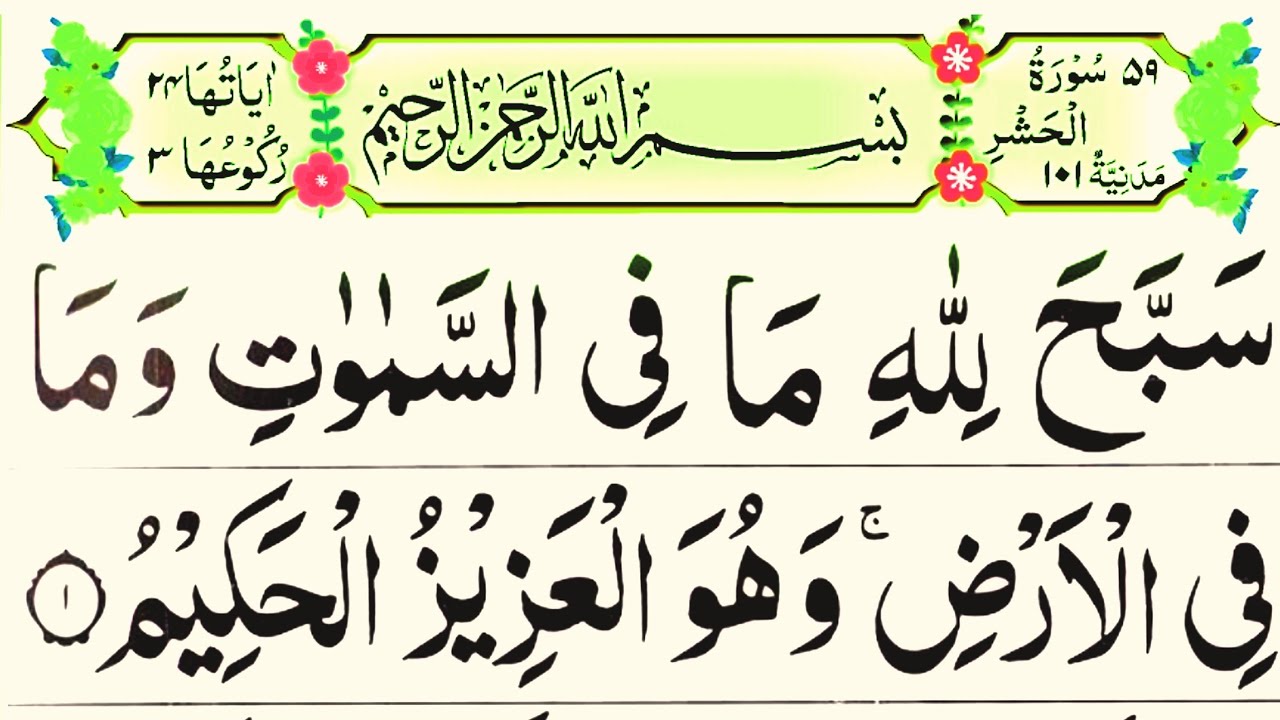 ۵۹ سُوْرَةُ
الْحَشْرِ
مَدَنِيَّةٌ ١٠١
بِسْمِ اللّٰهِ الرَّحْمٰنِ الرَّحِيْمِ
اٰيَاتُهَا ۲۴
رُكُوْعُهَا ۳
سَبَّحَ لِلّٰهِ مَا فِى السَّمٰوٰتِ وَمَا
فِى الْاَرْضِ ۚ وَهُوَ الْعَزِيْزُ الْحَكِيْمُ ١